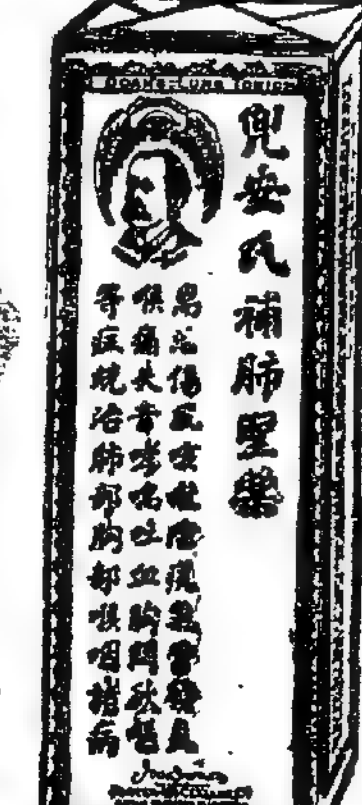 DOANS LUNG TONIC
兜安氏補肺聖藥
傷風咳嗽 氣管發炎
喉痛失音哮喘吐血胸悶
等症統治肺部胸部喉咽諸病